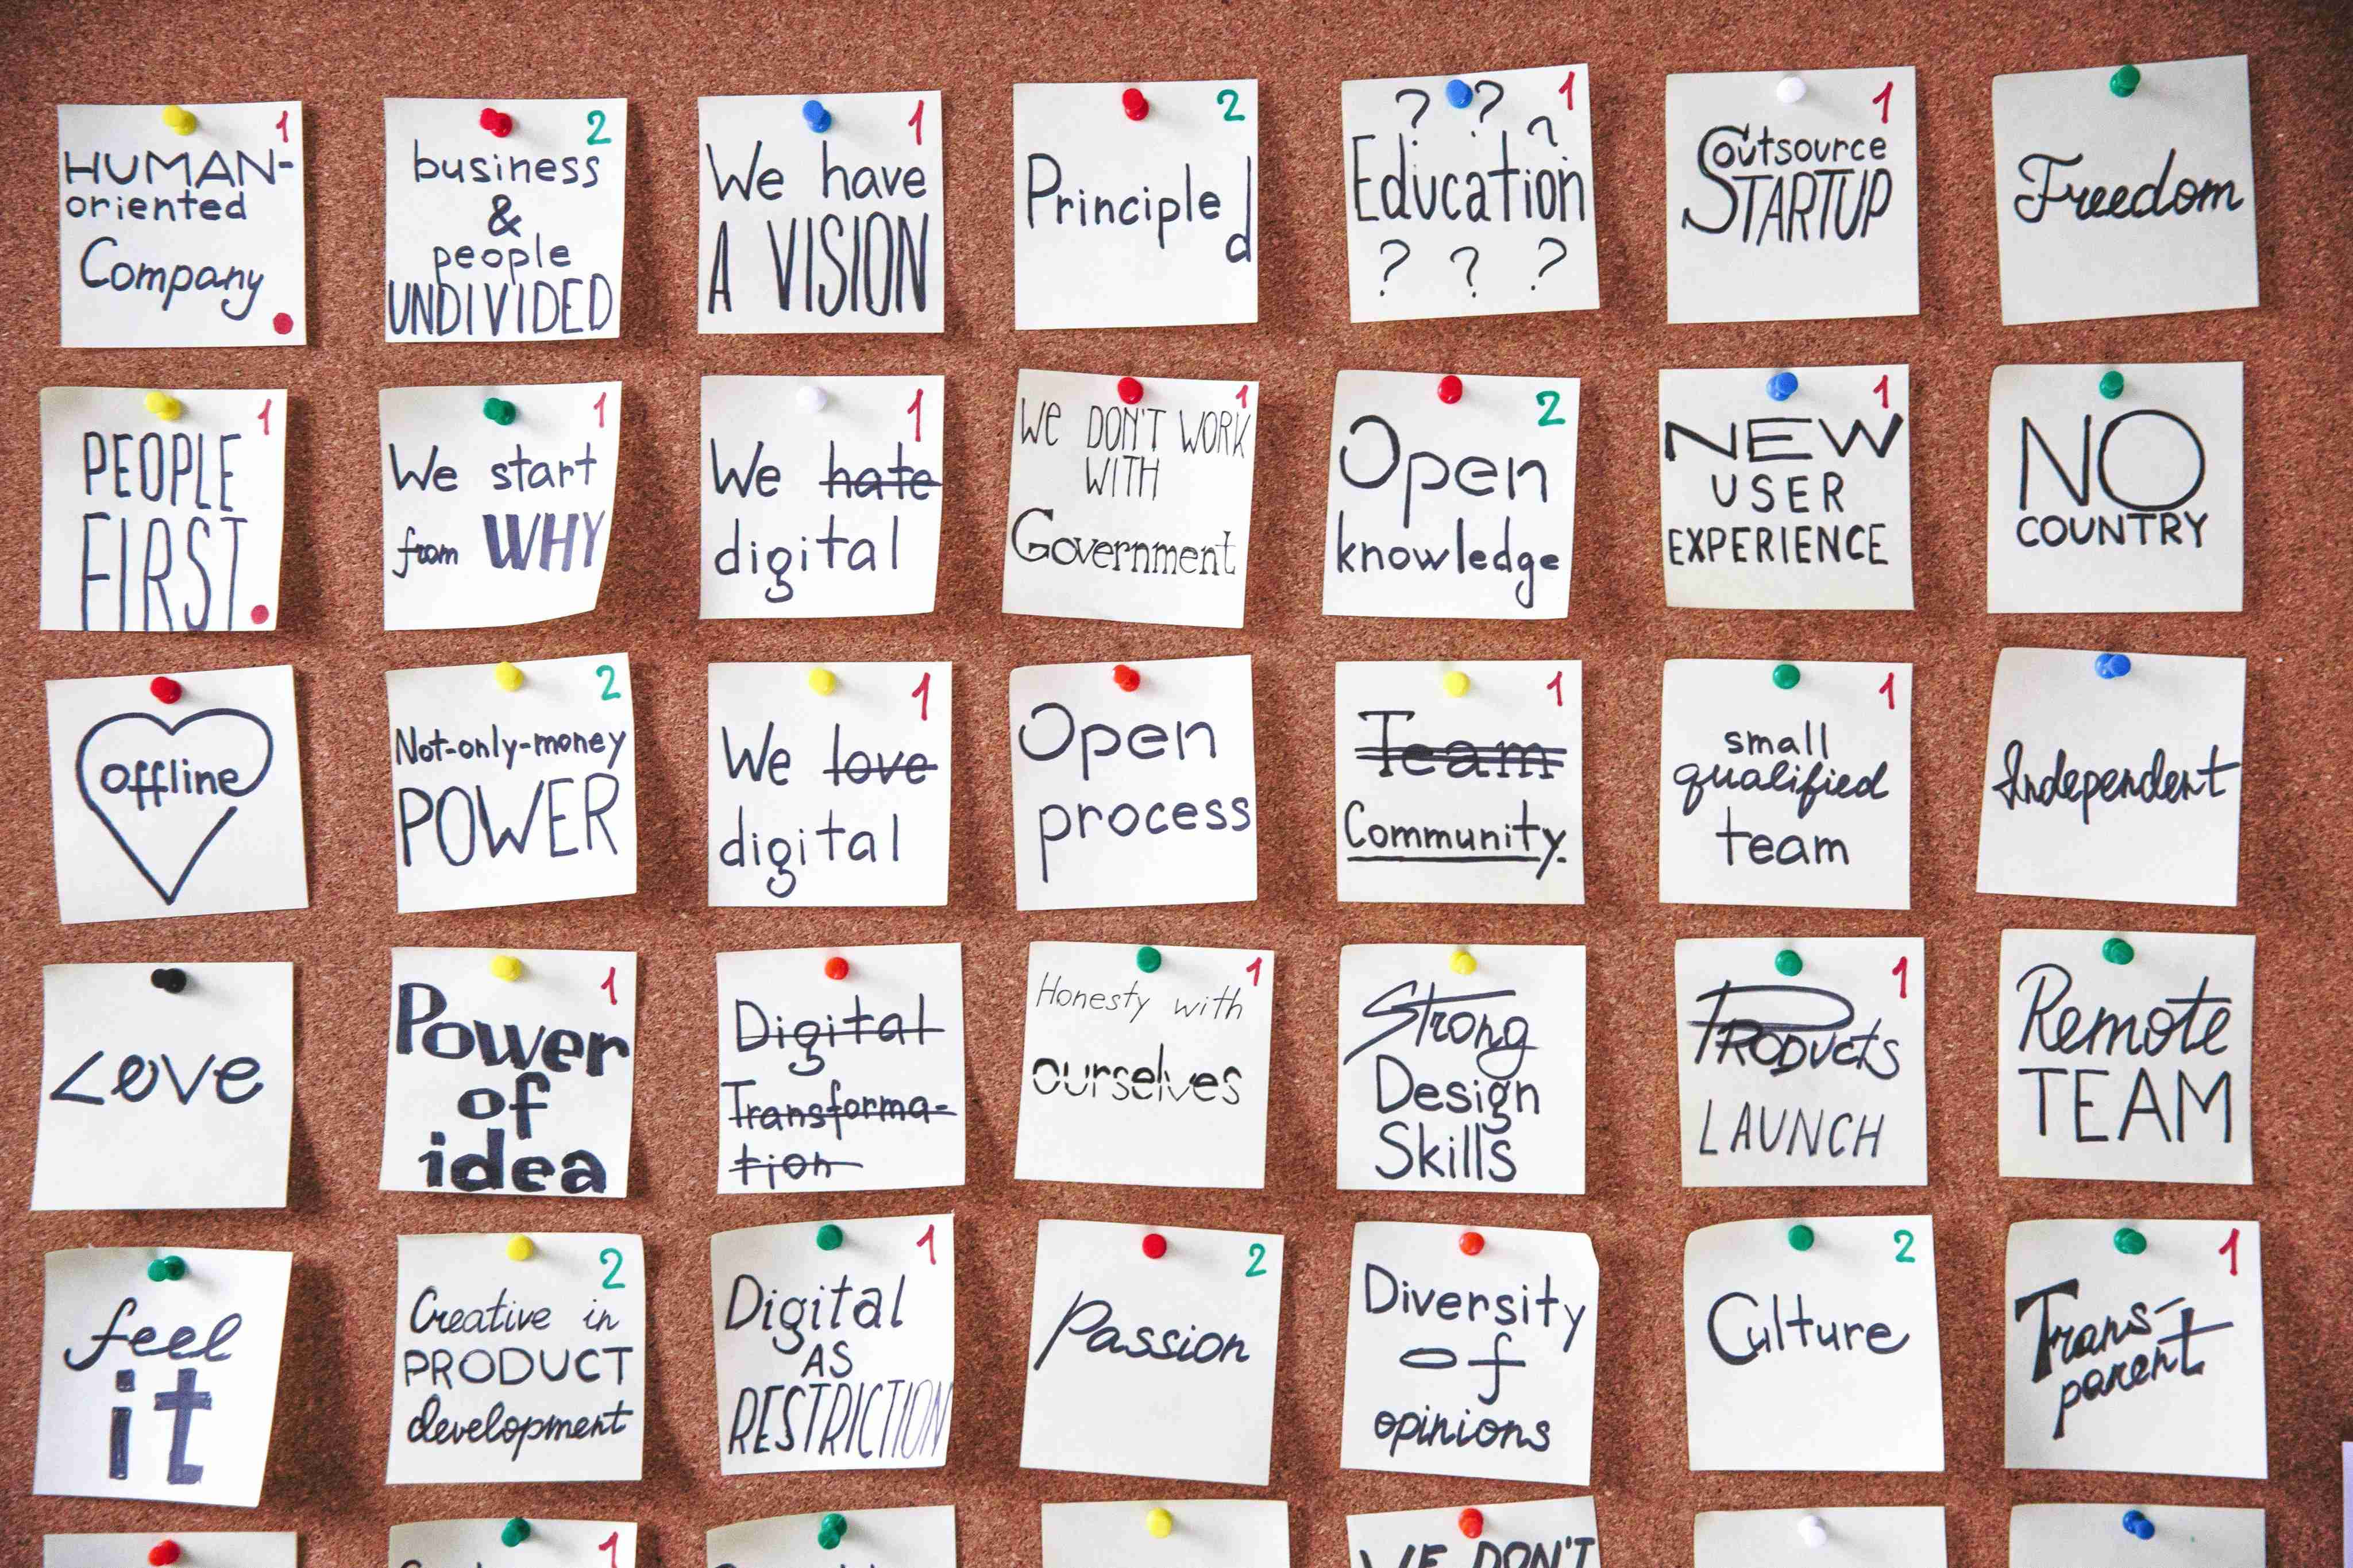 1
HUMAN-
oriented
Company
2
business
&
people
UNDIVIDED
1
We have
A VISION
2
Principled
? ? 1
?
Education
? ? ?
1
Outsource
STARTUP
Freedom
1
PEOPLE
FIRST
1
We start
from WHY
1
We hate
digital
1
WE DON'T WORK
WITH
Government
2
Open
knowledge
1
NEW
USER
EXPERIENCE
NO
COUNTRY
offline
2
Not-only-money
POWER
1
We love
digital
Open
process
1
Team
Community.
1
small
qualified
team
Independent
Love
1
Power
of
idea
Digital
Transforma-
tion
1
Honesty with
ourselves
Strong
Design
Skills
1
PRODUcts
LAUNCH
Remote
TEAM
feel
it
2
Creative in
PRODUCT
development
1
Digital
AS
RESTRICTION
2
Passion
Diversity
of
opinions
2
Culture
1
Trans-
parent
1
WE DON'T